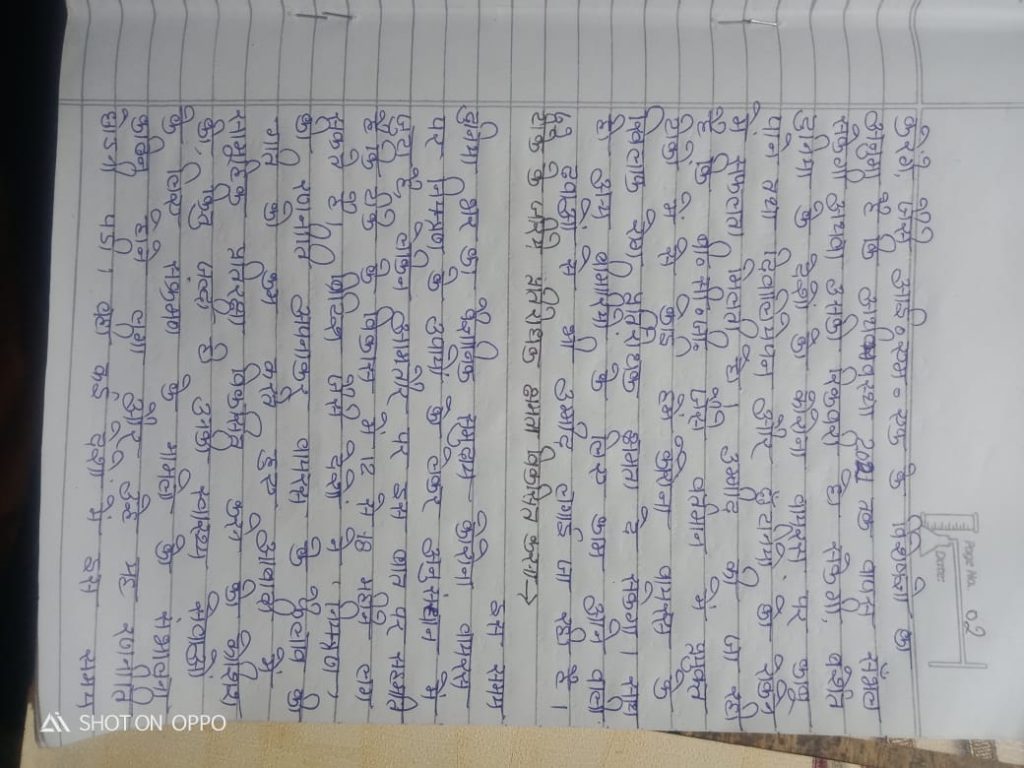 Page No. 02
करने वाली जैसे आई०एम०एफ के विशेषज्ञों का
अनुमान है कि अर्थव्यवस्था 2021 तक वापस सँभल
सकेगी अथवा उसके रिकवरी हो सकेगी, बशर्ते
दुनिया के देशों को कोरोना वायरस पर काबू
पाने तथा दिवालियापन और छँटनी को रोकने
में सफलता मिलती है। उम्मीद की जा रही
है कि बी०सी०जी० जैसे वर्तमान में प्रयुक्त
टीकों में से कोई इस कोरोना वायरस के
खिलाफ रोग प्रतिरोधक क्षमता दे सकेगा। साथ
ही अन्य बीमारियों के लिए काम आने वाली
दवाओं से भी उम्मीद लगाई जा रही है।
टीके के जरिये प्रतिरोधक क्षमता विकसित करना →
इस समय
दुनिया भर का वैज्ञानिक समुदाय कोरोना वायरस
पर नियंत्रण के उपायों को लेकर अनुसंधान में
जुटा है लेकिन आमतौर पर इस बात पर सहमति
है कि टीके के विकास में 12 से 18 महीने लग
सकते हैं। पीड़ित वाले देशों ने 'नियंत्रण'
की रणनीति अपनाकर वायरस के फैलाव की
गति को कम करते हुए आबादी में
सामूहिक प्रतिरक्षा विकसित करने की कोशिश
की, किंतु जल्द ही उनकी स्वास्थ्य सेवाओं
के लिए संक्रमण के मामलों को संभालना
कठिन होने लगा और उन्हें यह रणनीति
छोड़नी पड़ी। वहीं कई देशों में इस समय
SHOT ON OPPO